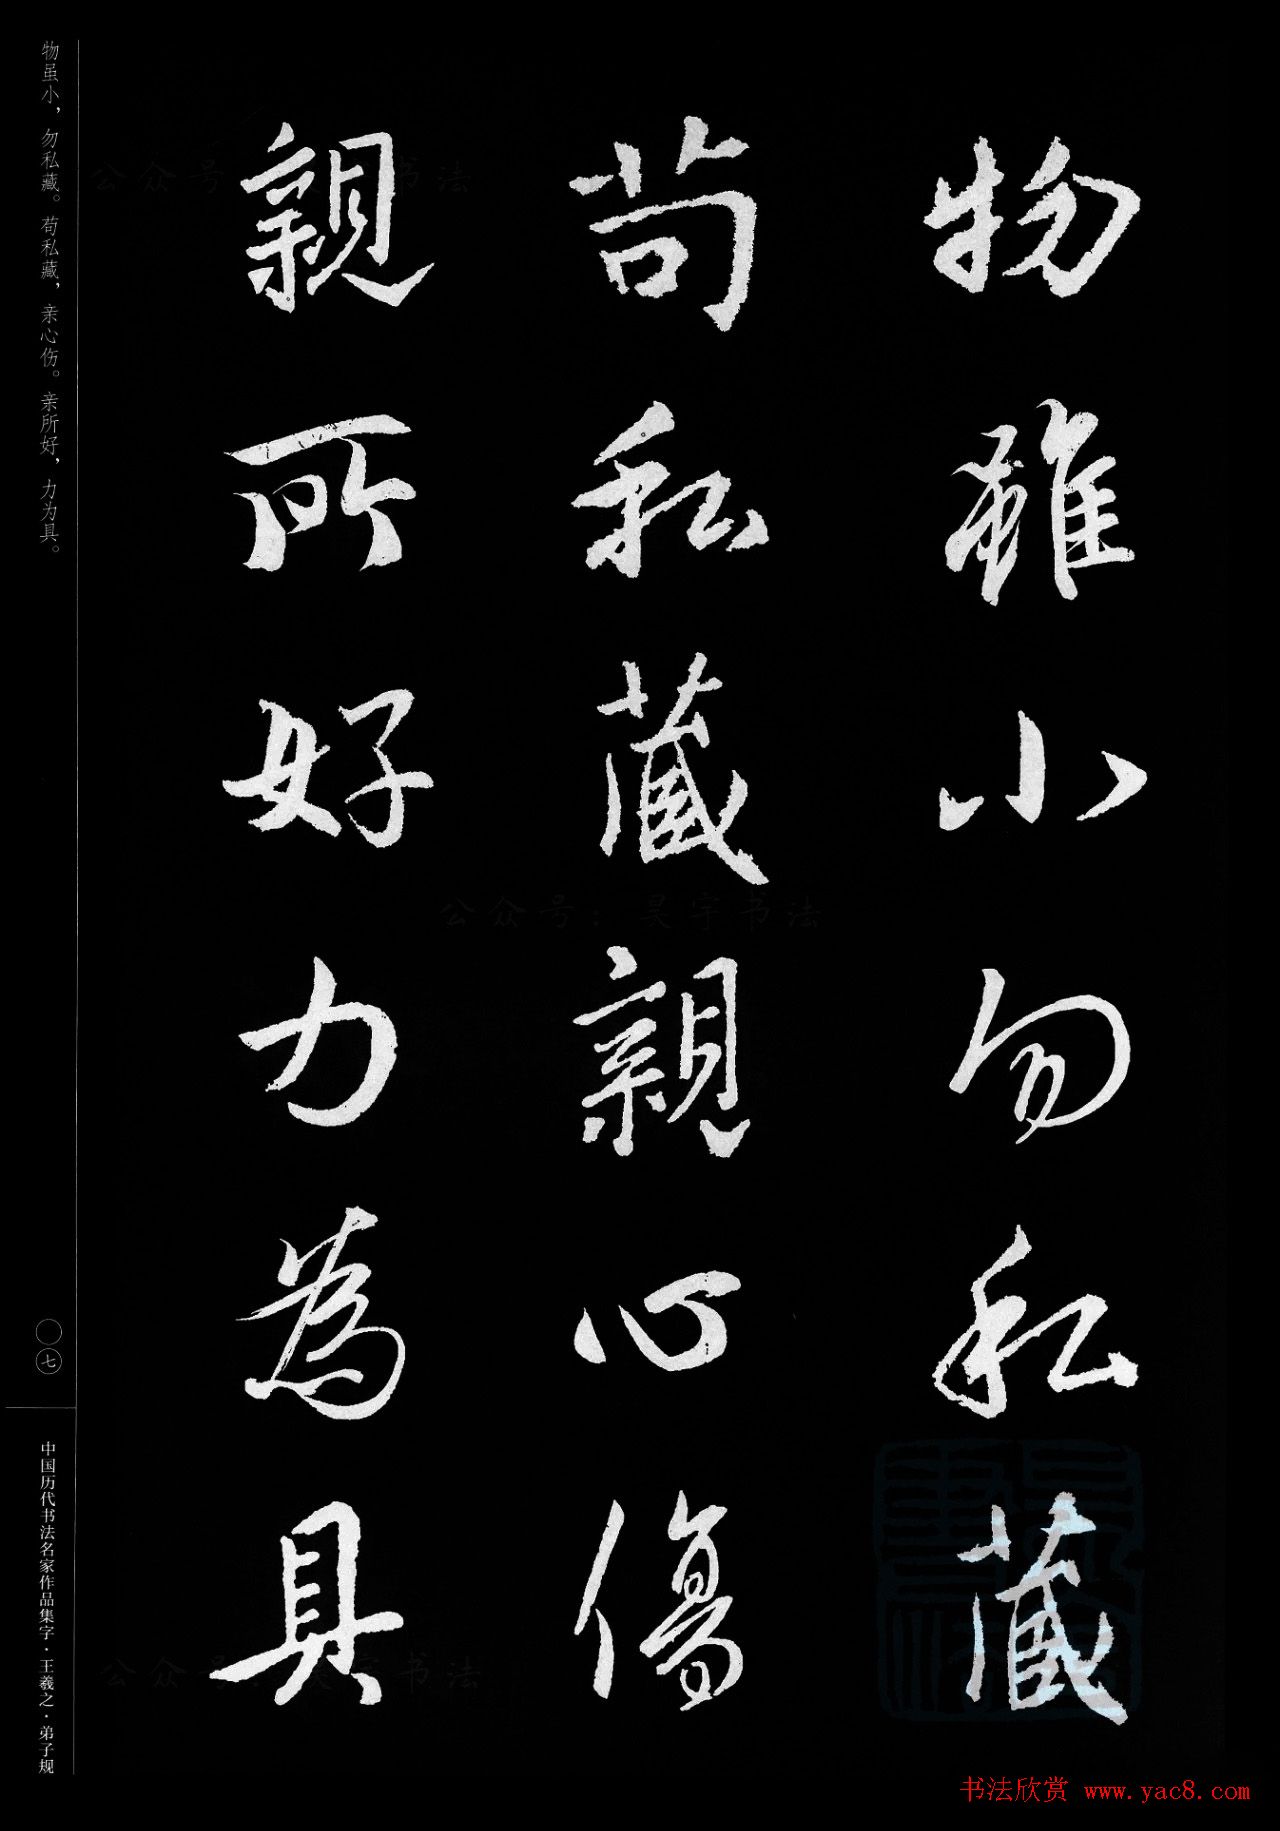 物雖小勿私藏
苟私藏親心傷
親所好力為具
物虽小，勿私藏。苟私藏，亲心伤。亲所好，力为具。
〇七
中国历代书法名家作品集字·王羲之·弟子规
公众号：昊宇书法
书法欣赏 www.yac8.com